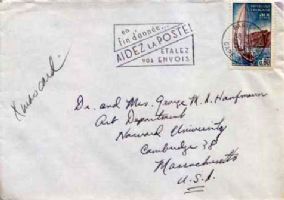 en
fin d'année...
AIDEZ LA POSTE!
ÉTALEZ
VOS ENVOIS
REPUBLIQUE FRANÇAISE
Xmas card
Dr. and Mrs. George M. A. Hanfmann
Art Department
Harvard University
Cambridge 38
Massachusetts
U.S.A.